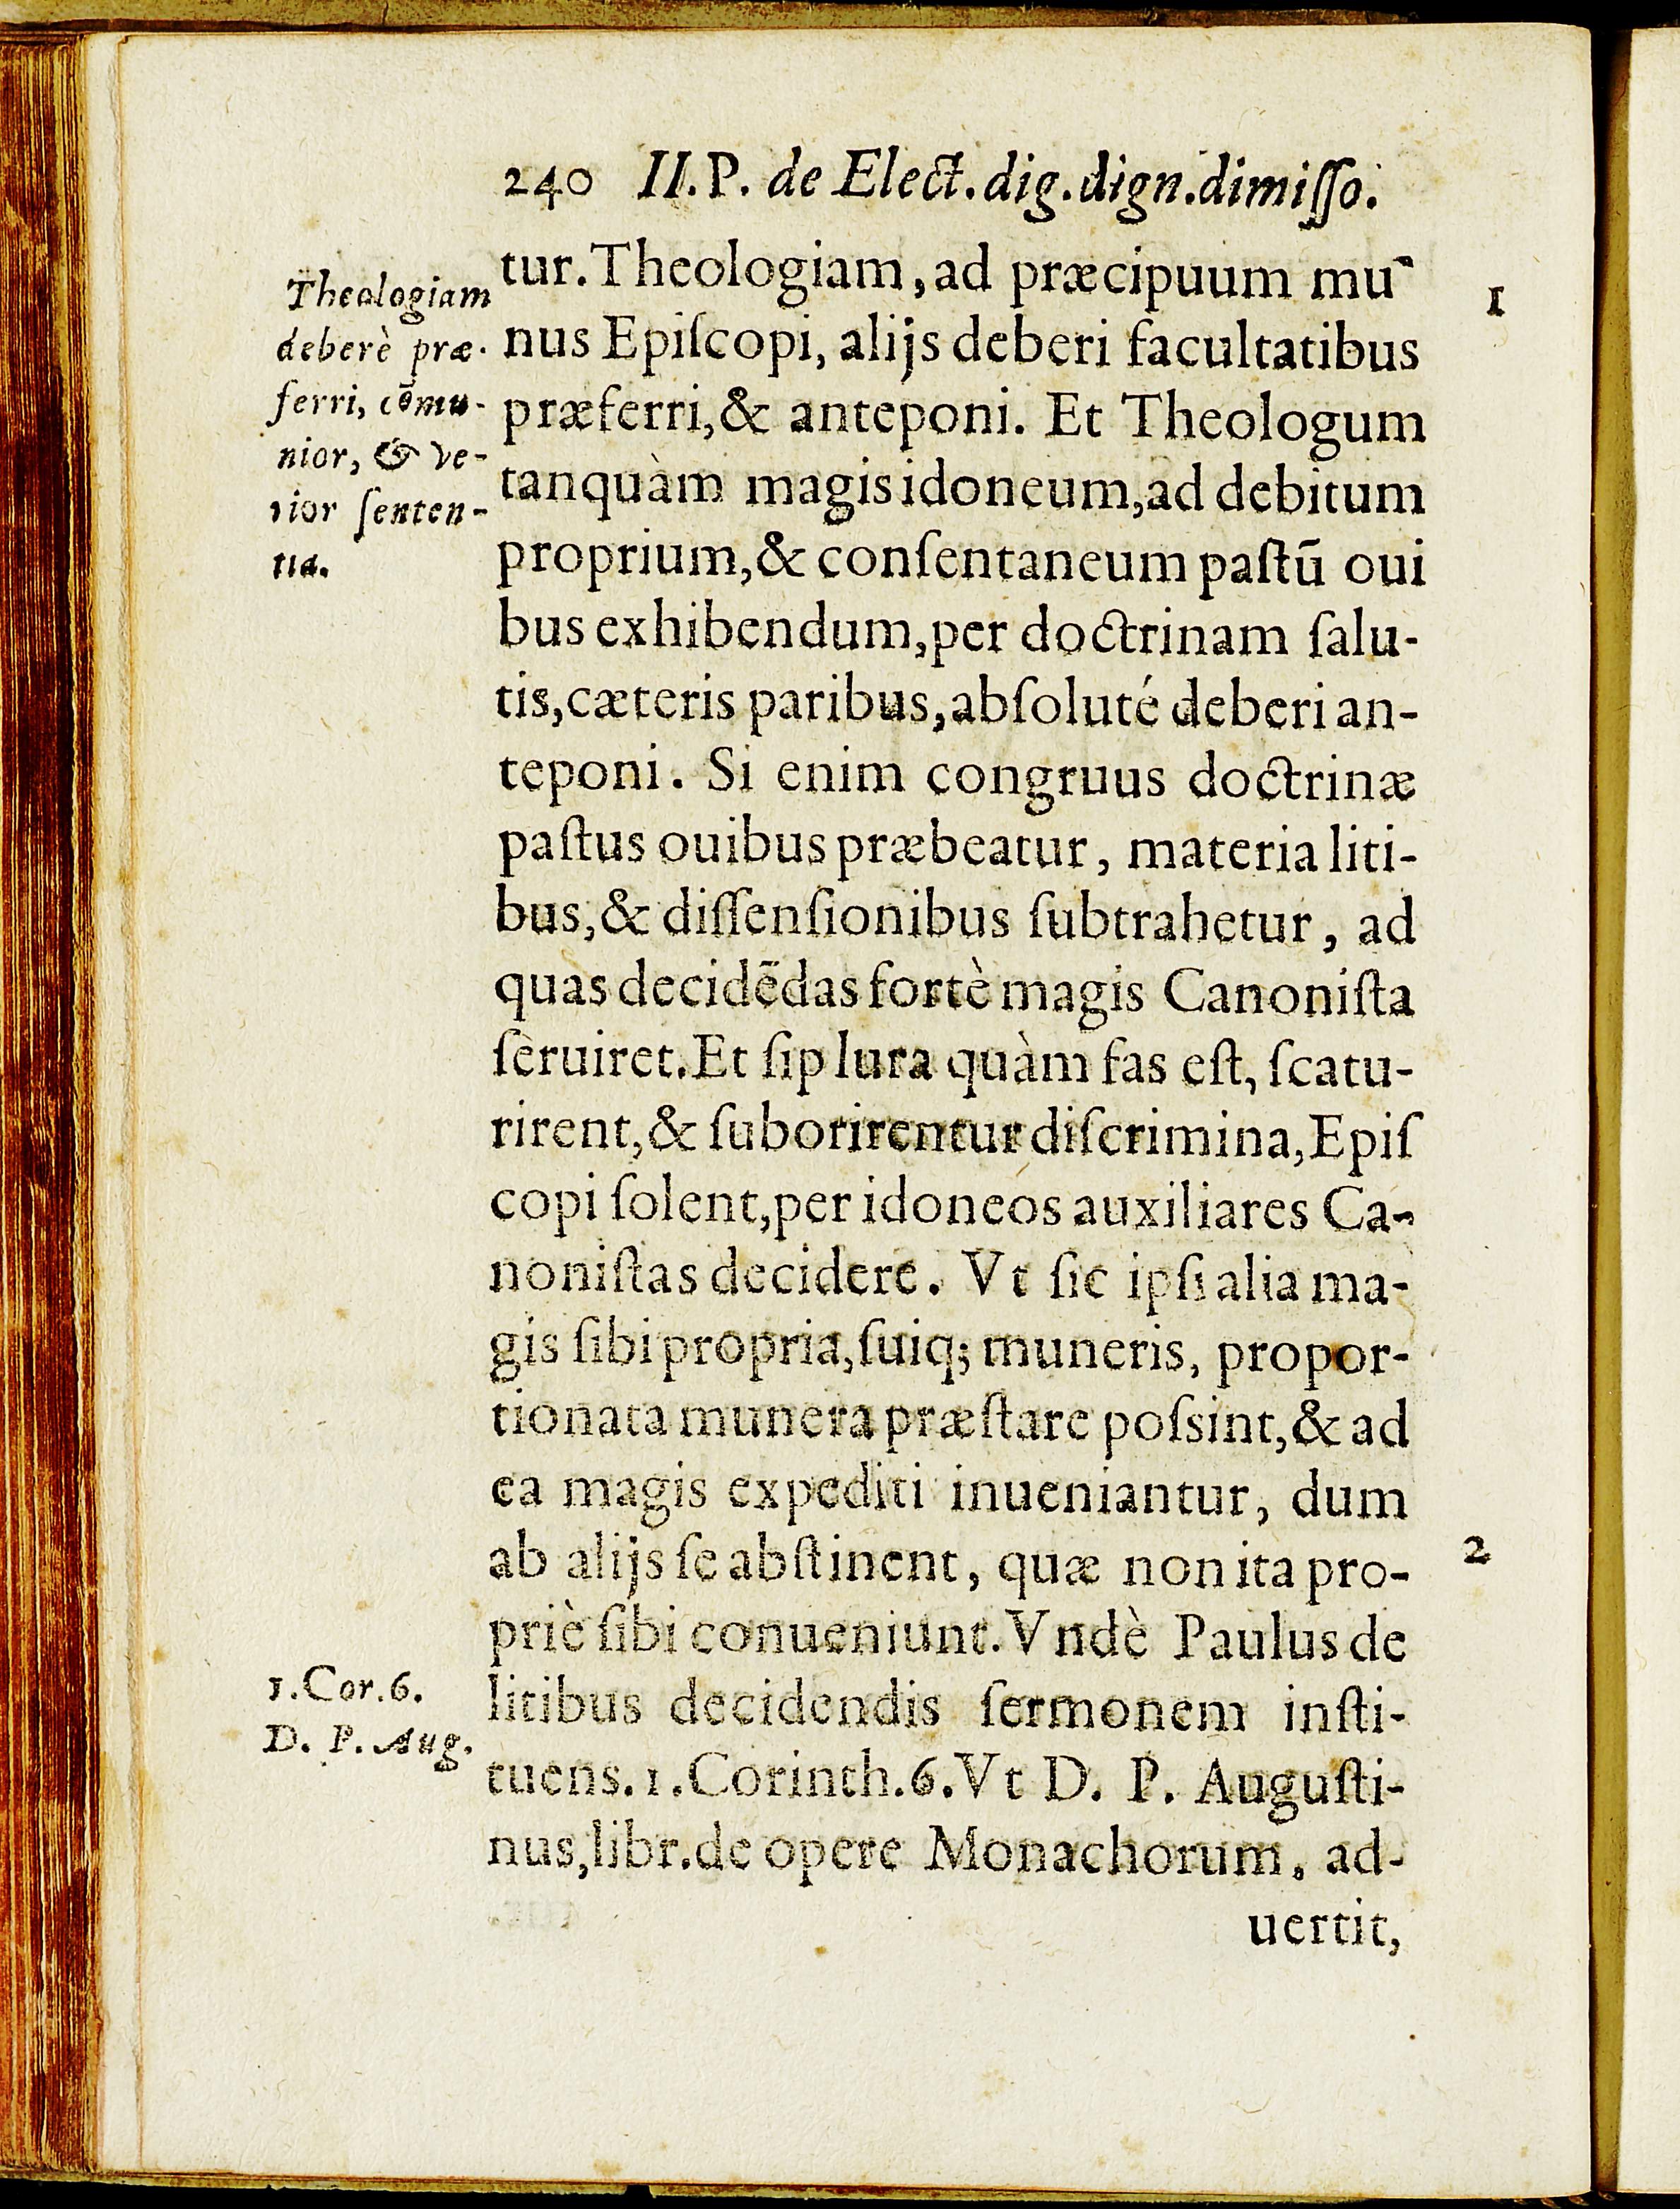 240 II.P. de Elect.dig.dign.dimiſſo.
Theologiam
deberè præ-
ferri, cōmu-
nior, & ve-
rior ſenten-
tia.
tur. Theologiam, ad præcipuum mu-
nus Epiſcopi, alijs deberi facultatibus
præferri, & anteponi. Et Theologum
tanquàm magis idoneum, ad debitum
proprium, & conſentaneum paſtū oui
bus exhibendum, per doctrinam ſalu-
tis, cæteris paribus, abſoluté deberi an-
teponi. Si enim congruus doctrinæ
paſtus ouibus præbeatur, materia liti-
bus, & diſſenſionibus ſubtrahetur, ad
quas decidēdas fortè magis Canoniſta
ſeruiret. Et ſip lura quàm fas eſt, ſcatu-
rirent, & ſuborirentur diſcrimina, Epiſ
copi ſolent, per idoneos auxiliares Ca-
noniſtas decidere. Vt ſic ipſi alia ma-
gis ſibi propria, ſuiq; muneris, propor-
tionata munera præſtare poſsint, & ad
ea magis expediti inueniantur, dum
ab alijs ſe abſtinent, quæ non ita pro-
priè ſibi conueniunt. Vndè Paulus de
litibus decidendis ſermonem inſti-
tuens. 1. Corinth. 6. Vt D. P. Auguſti-
nus, libr. de opere Monachorum, ad-
uertit,
1
2
1. Cor. 6.
D. P. Aug.